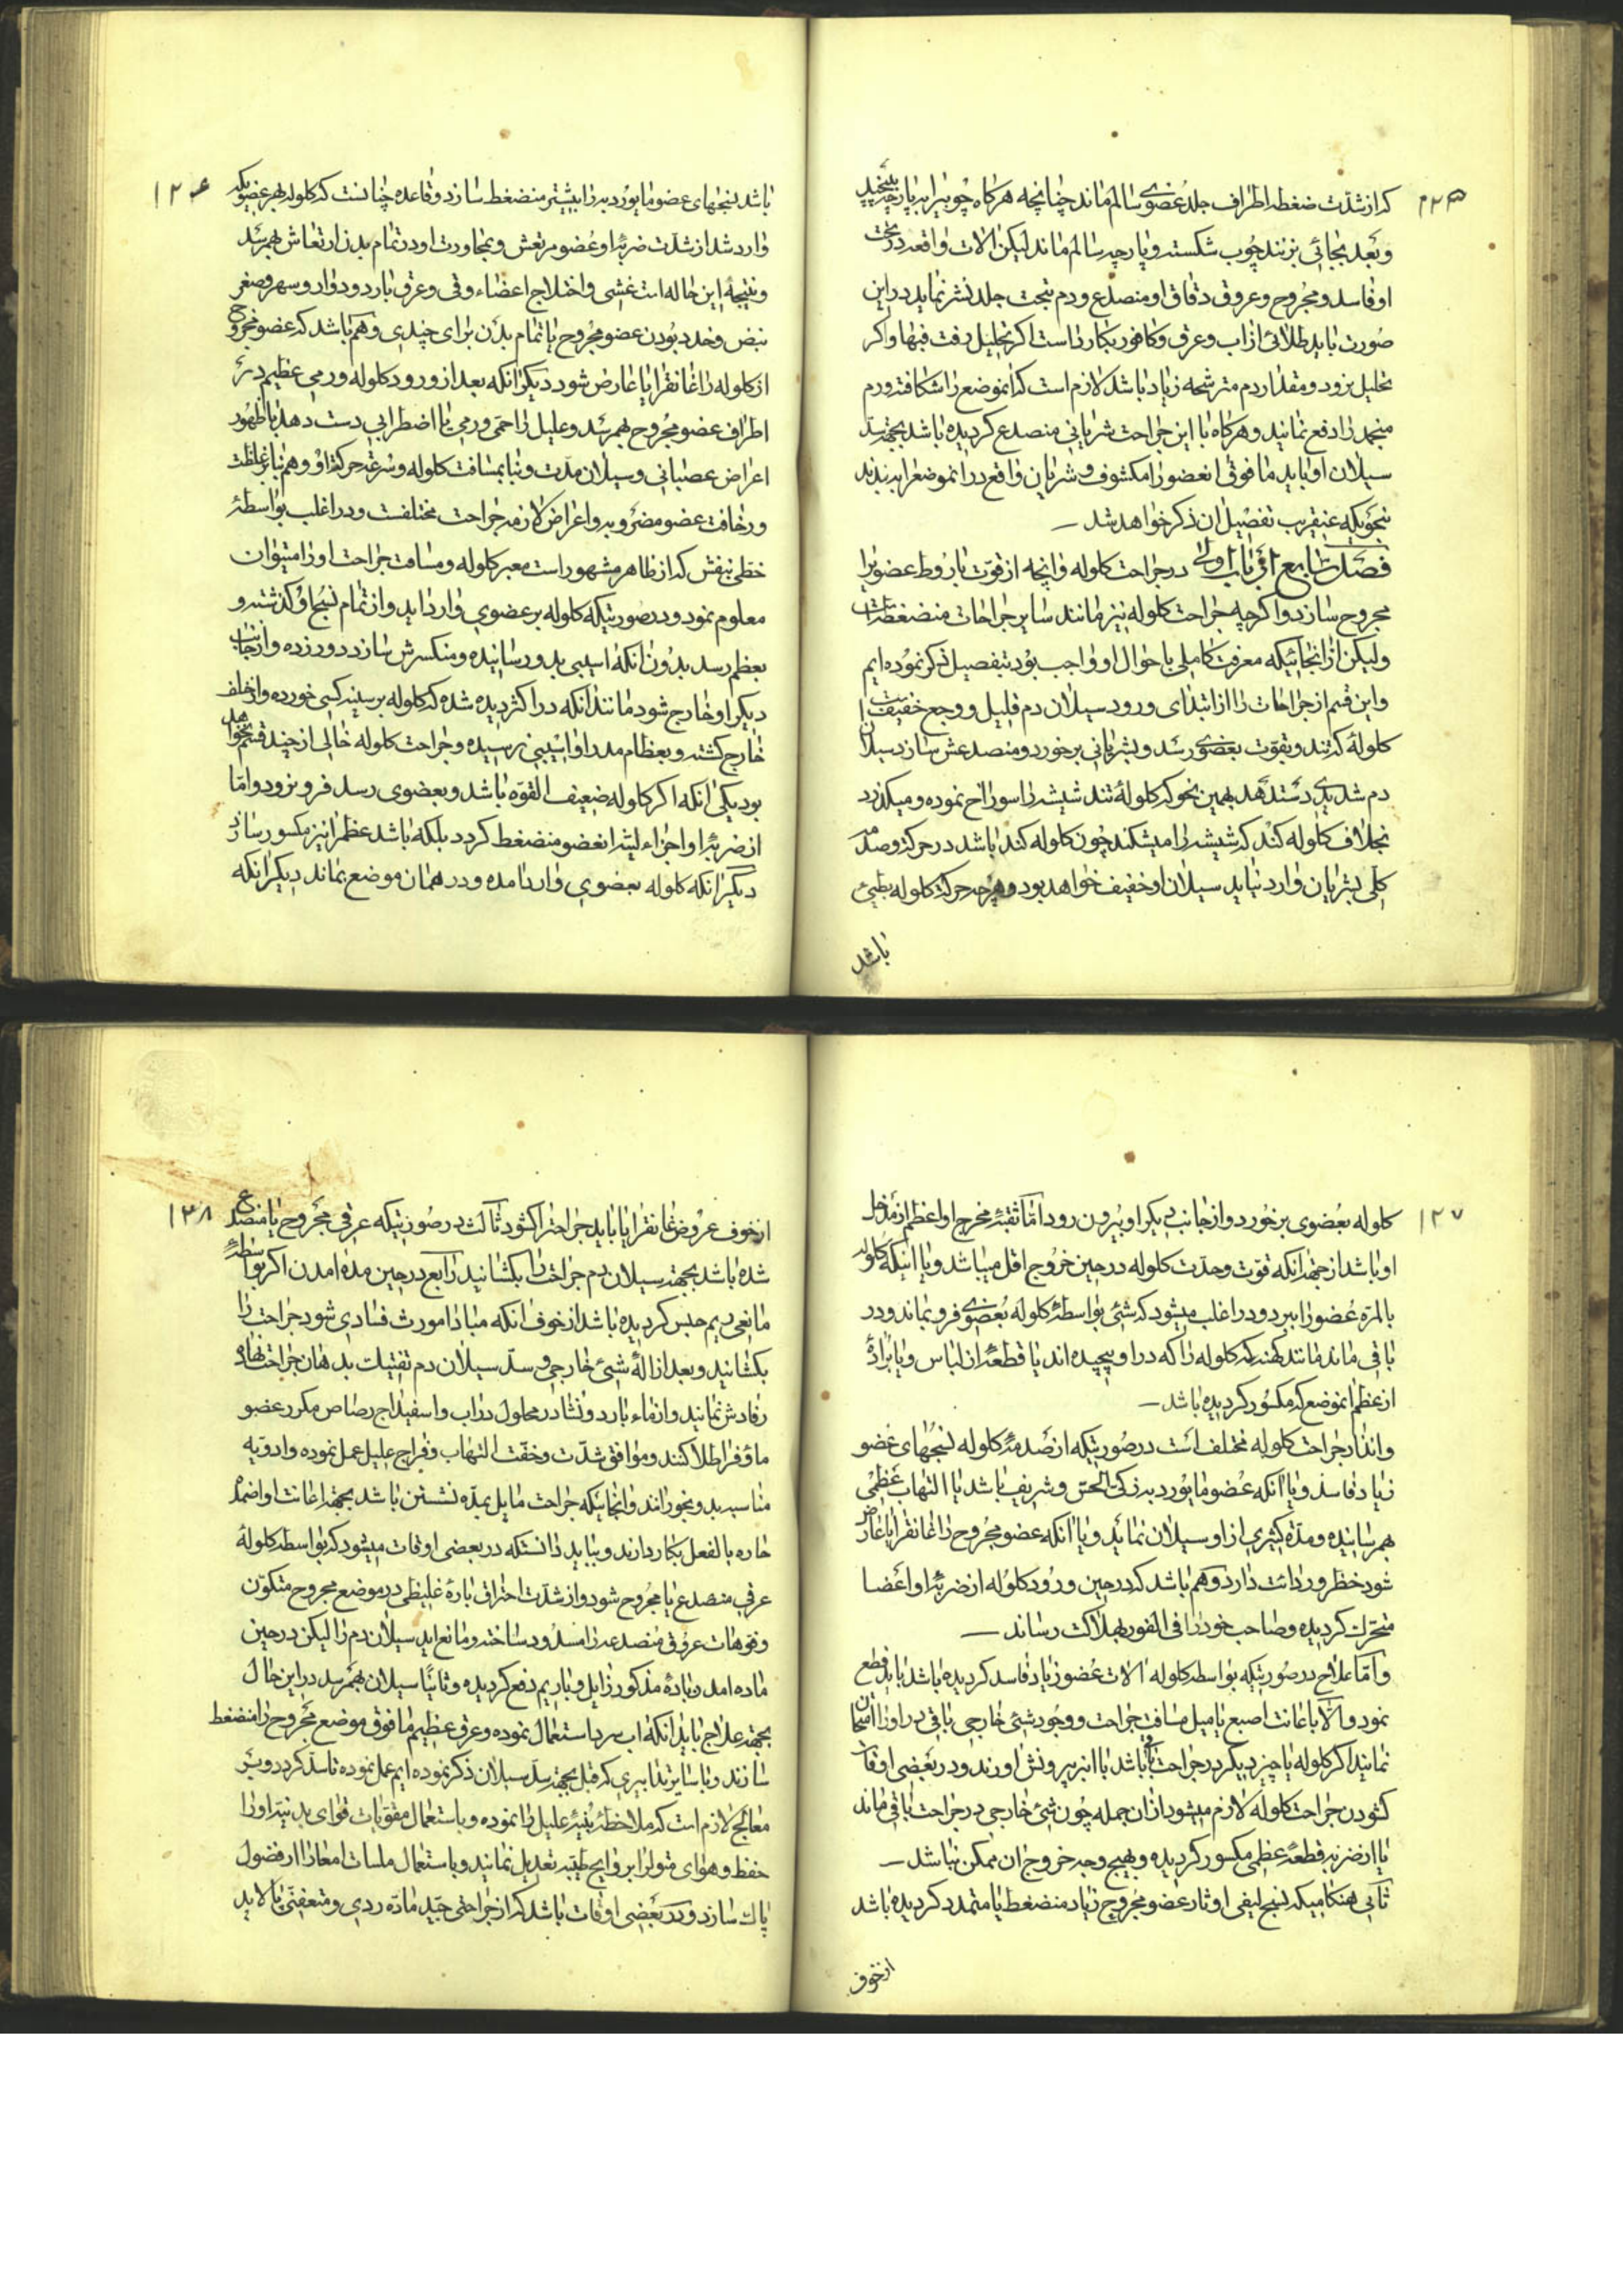 ۱۲۵
که از شدت ضغطه اطراف جلد عضوی سالم ماند چنانچه هرگاه چوبیرا بپارچه پیچند
و بعد بجائی بزنند چوب شکسته و پارچه سالم ماند لیکن الات واقعه در تحت
او فاسد و مجروح و عروق دقاق او منصدع و دم بتحت جلد نشر نماید در این
صورت باید طلائی از اب و عرق و کافور بکار داشت اکر بتحلیل رفت فبها و اکر
تحلیل نرود و مقدار دم مترشحه زیاد باشد لازم است که انموضع را شکافته و دم
منجمد را دفع نمایند و هرکاه با این جراحت شریانی منصدع کردیده باشد بجهة سد
سیلان او باید ما فوق انعضو را مکشوف و شریان واقع در انموضع را به بندند
بنحویکه عنقریب تفصیل ان ذکر خواهد شد
فصل رابع از باب اول در جراحت کلوله و انچه از قوت باروط عضویرا
مجروح سازد و اکرچه جراحت کلوله نیز مانند سایر جراحات منضغطه است
ولیکن از انجائیکه معرفت کاملی باحوال او واجب بود بتفصیل ذکر نموده ایم
و این قسم از جراحات را از ابتدای ورود سیلان دم قلیل و وجع خفیفست
کلولهٔ که تند و بقوت بعضوی رسد و بشریانی برخورد و منصدعش سازد سیلان
دم شدیدی دست دهد بهمین نحو که کلولهٔ تند شیشه را سوراخ نموده و میکذرد
بخلاف کلوله کند که شیشه را میشکند چون کلوله کند باشد در حرکة و صدمه
کلی بشریان وارد نیاید سیلان او خفیف خواهد بود و هرچه حرکت کلوله بطیئ
باشد
۱۲۶
باشد نسجهای عضو مایورد به را بیشتر منضغط سازد و قاعده چنانست که کلوله بهر عضویکه
وارد شد از شدت ضربهٔ او عضو مرتعش و بمجاورت او در تمام بدن ارتعاش بهم رسد
و نتیجهٔ این حاله است غشی و اختلاج اعضاء و قی و عرق بارد و دوار و سهر و صغر
نبض و خدر بودن عضو مجروح یا تمام بدن برای چندی و هم باشد که عضو مجروح
از کلوله را غانقرایا عارض شود دیکر انکه بعد از ورود کلوله ورمی عظیم در
اطراف عضو مجروح بهم رسد و علیل را حمی ورمی با اضطرابی دست دهد با ظهور
اعراض عصبانی و سیلان مدت و بنا بمسافت کلوله و سرعة حرکة او و هم بنا بر غلظت
و رخاقت عضو مضروبه و اعراض لازمه جراحت مختلفست و در اغلب بواسطهٔ
خطی بنفش که از ظاهر مشهور است معبر کلوله و مسافت جراحت او را میتوان
معلوم نمود و در صورتیکه کلوله بر عضوی وارد اید و از تمام نسج او کذشته و
بعظم رسد بدون انکه اسیبی بدو رسانیده و منکسرش سازد دور زده و از جانب
دیکر او خارج شود مانند انکه در اکثر دیده شده که کلوله بر سینه کسی خورده و از خلف
خارج کشته و بعظام صدر او اسیبی نرسیده و جراحت کلوله خالی از چند قسم نخواهد
بود یکی انکه اکر کلوله ضعیف القوه باشد و بعضوی رسد فرو نرود و اما
از ضربهٔ او اجزاء لینه انعضو منضغط کردد بلکه باشد عظم را نیز مکسور سازد
دیکر انکه کلوله بعضوی وارد امده و در همان موضع بماند دیکر انکه
۱۲۷
کلوله بعضوی برخورد و از جانب دیکر او بیرون رود اما ثقبهٔ مخرج او اعظم از مدخل
او باشد از جهة انکه قوت و حدت کلوله در حین خروج اقل میباشد و یا اینکه کلوله
بالمرة عضو را ببرد و در اغلب میشود که شئی بواسطهٔ کلوله بعضوی فرو بماند و در
باقی ماند مانند کهنه که کلوله را که در او پیچیده اند یا قطعهٔ از لباس و یا پارهٔ
از عظم انموضع که مکسور کردیده باشد
و انذار جراحت کلوله مختلف است در صورتیکه از صدمهٔ کلوله نسجهای عضو
زیاد فاسد و یا انکه عضو مایورد به زکی الحس و شریف باشد یا التهاب عظمی
بهم رسانیده و مدة کثیری از او سیلان نماید و یا انکه عضو مجروح را غانقرایا عارض
شود خطر و ردائت دارد و هم باشد که در حین ورود کلوله از ضربهٔ او اعضا
متحرک کردیده و صاحب خود را فی الفور بهلاکت رساند
و اما علاج در صورتیکه بواسطه کلوله الات عضو زیاد فاسد کردیده باشد باید قطع
نمود و الا باعانت اصبع یا میل مسافت جراحت و وجود شئی خارجی باقی در او را امتحان
نمایند اکر کلوله یا چیز دیکر در جراحت باقی باشد با انبر بیرونش اورند و در بعضی اوقات
کشودن جراحت کلوله لازم میشود از ان جمله چون شئی خارجی در جراحت باقی ماند
یا از ضربه قطعهٔ عظمی مکسور کردیده و بهیچ وجه خروج ان ممکن نباشد
ثانی هنکامیکه نسج لیفی اوتار عضو مجروح زیاد منضغط یا متمدد کردیده باشد
از خوف
۱۲۸
از خوف عروض غانقرایا باید جراحترا کشود ثالث در صورتیکه عرقی مجروح یا منصدع
شده باشد بجهة سیلان دم جراحت را بکشانید رابع در حین مده امدن اکر بواسطهٔ
مانعی ریم حبس کردیده باشد از خوف انکه مبادا مورث فسادی شود جراحت را
بکشانید و بعد ازالهٔ شیئ خارجی و سد سیلان دم تفتیلت بدهان جراحت نهاده
رفادش نمایند و از ماء بارد و نشادر محلول در اب و اسفیداج رصاص مکرر عضو
ماؤف را طلا کنند و موافق شدت و خفت التهاب و مزاج علیل عمل نموده و ادویه
مناسبه بدو بخورانند و انجائیکه جراحت مایل بمده نشستن باشد بجهة اعانت او اضمدهٔ
حاره بالفعل بکار دارند و بباید دانست که در بعضی اوقات میشود که بواسطه کلوله
عرقی منصدع یا مجروح شود و از شدت احتراق پارهٔ غلیظی در موضع مجروح متکون
و فوهات عروق منصدعه را مسدود ساخته و مانع اید سیلان دم را لیکن در حین
ماده امدن مادهٔ مذکور زایل و با ریم دفع کردیده و ثانیا سیلان بهم رسد در این حال
بجهة علاج باید انکه اب سرد استعمال نموده و عرق عظیم ما فوق موضع مجروح را منضغط
سازند و یا سایر تدابیری که قبل بجهة سد سیلان ذکر نموده ایم عمل نموده تا سد کردد و بر
معالج لازم است که ملاحظهٔ بنیهٔ علیل را نموده و باستعمال مقویات قوای بدنیهٔ او را
حفظ و هوای منزل را بروایح طیبه تعدیل نمایند و باستعمال ملینات امعا را از فضول
پاک سازد و در بعضی اوقات باشد که از جراحتی جید ماده ردی و متعفنی پالاید